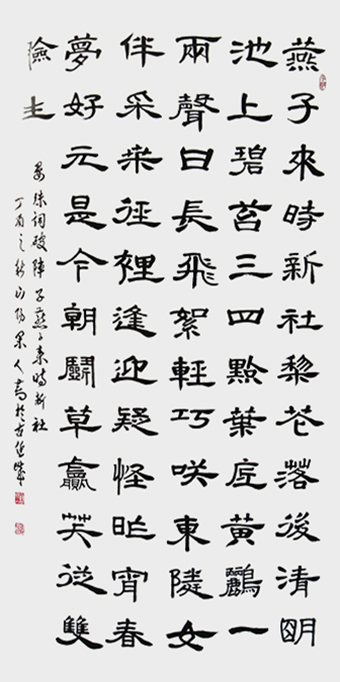 燕子來時新社黎花落後清明
池上碧苔三四點葉底黃鸝一
兩聲日長飛絮輕巧咲東隣女
伴采桒徑裡逢迎疑怪昨宵春
夢好元是今朝鬭草贏笑從雙
臉生
晏殊詞破陣子燕子來時新社
丁酉之秋山陽人書於古